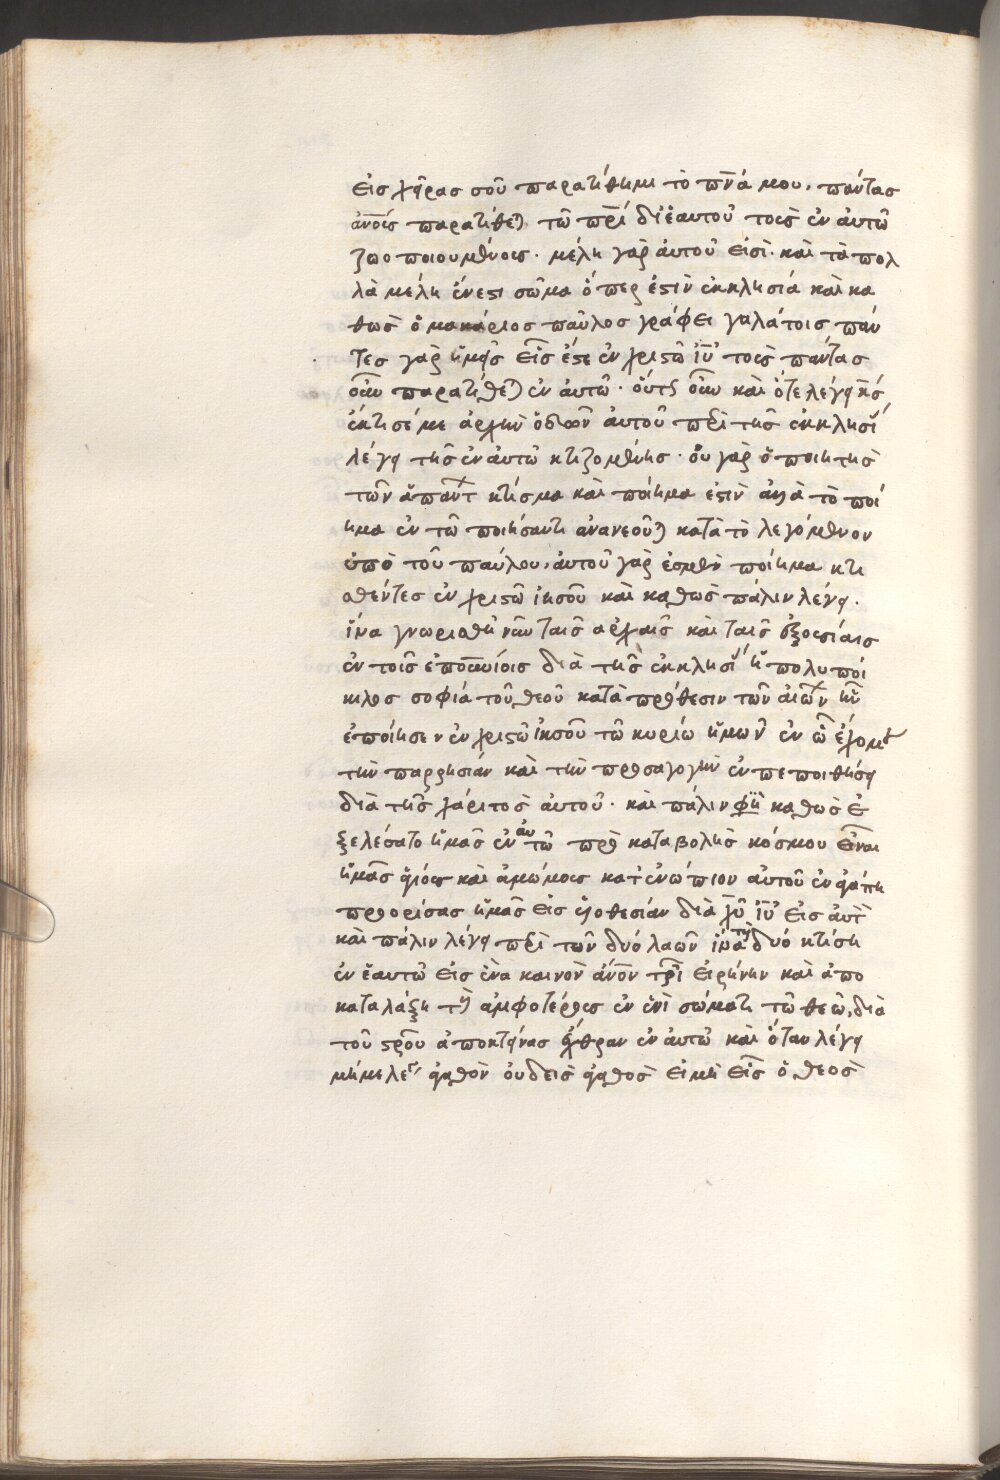 εἰσ χεῖρασ σοῦ παρατίθημι τὸ πν̅ά μου, πάντασ
ἀνο̅ίς παρατίθεται τῶ πρ̅ί δἰ ἑαυτοῦ τοὺς ἐν ἀυτῶ
ζωοποιουμένους · μέλη γὰρ ἀυτοῦ εἰσὶ · καὶ τὰ πολ
λὰ μέλη ἕνεστι σῶμα ὅπερ ἐστὶν ἐκκλησιά καὶ κα
θωσ ὁ μακάριοσ παῦλοσ γράφει γαλάτοισ πάν
τεσ γὰρ ὑμεῖσ εἷσ ἐστε ἐν χριστῶ ἰ̅υ̅ τοὺς πάντασ
οὖν παρατίθεται ἐν ἀυτῶ · οὕτως οὖν καὶ ὅτε λέγει κ̅σ
ἔκτισέ με ἀρχὴν ὁδῶν ἀυτοῦ περὶ τῆσ ἐκκλησί
λέγει τῆσ ἐν ἀυτῶ κτιζομένησ · οὐ γὰρ ὁ ποιητὴσ
τῶν ἁπάντ κτίσμα καὶ ποίημα ἐστὶν ἀλλὰ τὸ ποί
ημα ἐν τῶ ποιήσαντι ἀνανεοῦται κατὰ τὸ λεγόμενον
ὑπὸ τοῦ παύλου, ἀυτοῦ γὰρ ἐσμὲν ποίημα κτι
σθέντεσ ἐν χριστῶ ἰησοῦ καὶ καθὼσ πάλιν λέγει.
ἵνα γνωρισθῆ νῦν ταῖσ αρχαῖσ καὶ ταῖσ ἐξουσίαισ
ἐν τοῖσ ἐπουρανίοισ διὰ τῆσ ἐκκλησί ἡ πολυποί
κιλοσ σοφιά τοῦ θεοῦ κατὰ πρόθεσιν τῶν ἀιών ἣν
ἐποίησεν ἐν χριστῶ ἰησοῦ τῶ κυρίω ἡμῶν ἐν ὧ ἔχομεν
τὴν παρρησιάν καὶ τὴν προσαγογὴν ἐν πεποιθήσει
διὰ τῆσ χάριτοσ ἀυτοῦ · καὶ πάλιν φη̅ καθωσ ἐ
ξελέσατο ἡμᾶσ ἐν αυτῶ πρὸ καταβολῆσ κόσμου εἶναι
ἡμᾶσ ἁγίους καὶ ἀμώμους κατ ἐνώπιον αυτοῦ ἐν ἀγάπη
προορίσασ ἡμᾶσ εἰσ υἱοθεσίαν διὰ χ̅υ̅ ἰ̅υ̅ εἰσ ἀυτὸν
καὶ πάλιν λέγει περὶ τῶν δυό λαῶν ἵνα τοὺς δυό κτίση
ἐν ἑαυτῶ εἰσ ἕνα καινὸν ἄνο̅ν τρ̅ί εἰρήνην καὶ ἀπο
καταλάξη τοὺς ἀμφοτέρους ἐν ἑνὶ σώματι τῶ θεῶ, διὰ
τοῦ στρο̅υ ἀποκτείνασ ἔχθραν ἐν ἀυτῶ καὶ ὅταν λέγει
μήμελεγ ἀγαθὸν ουδεὶσ ἀγαθὸσ εἰμὴ εἷσ ὁ θεὸσ